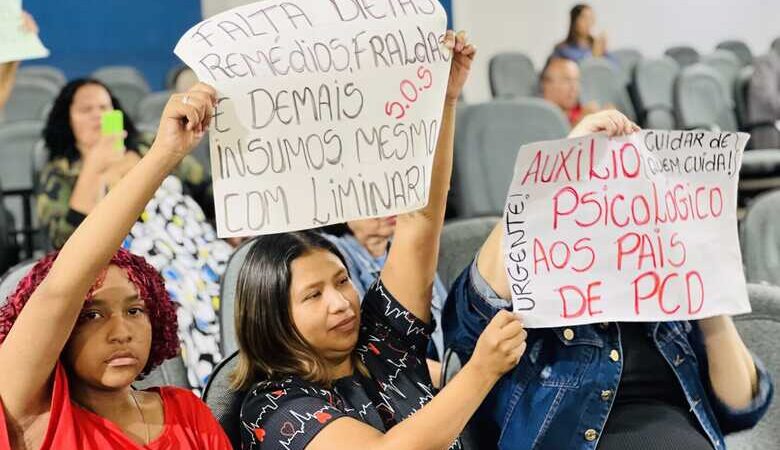 FALTA DIETAS
REMÉDIOS, FRALDAS
E DEMAIS
S.O.S
INSUMOS, MESMO
COM LIMINAR!
AUXÍLIO
CUIDAR DE
QUEM CUIDA!
PSICOLÓGICO
AOS PAIS
DE PCD
URGENTE!